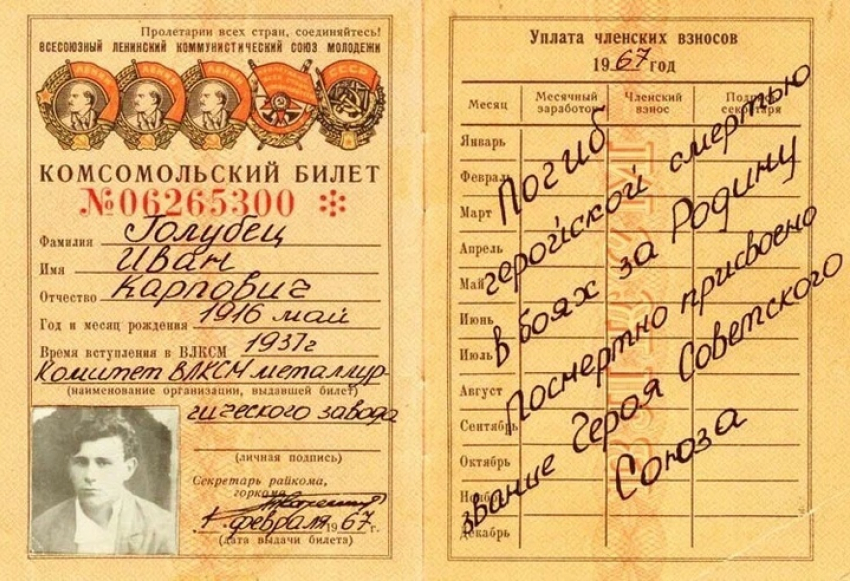 Пролетарии всех стран, соединяйтесь!
ВСЕСОЮЗНЫЙ ЛЕНИНСКИЙ КОММУНИСТИЧЕСКИЙ СОЮЗ МОЛОДЕЖИ
ЛЕНИН ЛЕНИН ЛЕНИН СССР
КОМСОМОЛЬСКИЙ БИЛЕТ
№06265300
Фамилия Голубец
Имя Иван
Отчество Карпович
Год и месяц рождения 1916 май
Время вступления в ВЛКСМ 1937г
Комитет ВЛКСМ металлур-
(наименование организации, выдавшей билет)
гического завода
(личная подпись)
Секретарь райкома,
горкома
февраля 1967 г.
(дата выдачи билета)
Уплата членских взносов
1967 год
Месяц Месячный заработок Членский взнос Подпись секретаря
Январь
Февраль
Март
Апрель
Май
Июнь
Июль
Август
Сентябрь
Октябрь
Ноябрь
Декабрь
Погиб
геройской смертью
в боях за Родину
Посмертно присвоено
звание Героя Советского
Союза